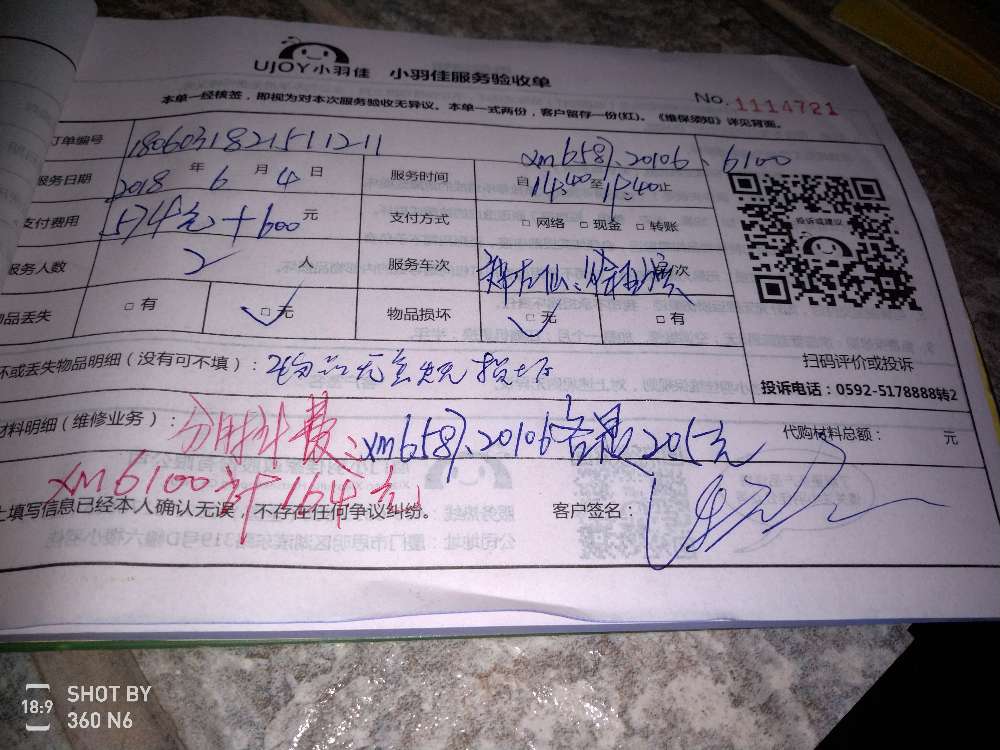 UJOY小羽佳 小羽佳服务验收单
No. 1114721
本单一经核签，即视为对本次服务验收无异议。本单一式两份，客户留存一份(红)。《维保须知》详见背面。
订单编号 180603182151121 1 xm6581、20106、6100
服务日期 2018 年 6 月 4 日 服务时间 自 14:40 至 17:40 止
支付费用 574元+600 元 支付方式 □ 网络 □ 现金 □ 转账
服务人数 2 人 服务车次 次
物品丢失 □ 有 □ 无 物品损坏 □ 无 □ 有
投诉或建议
扫码评价或投诉
投诉电话：0592-5178888转2
坏或丢失物品明细（没有可不填）：物品无丢失无损坏
材料明细（维修业务）：分时计费：xm6581、20106各是205元 代购材料总额： 元
xm6100计164元
上填写信息已经本人确认无误，不存在任何争议纠纷。 客户签名：
18:9 SHOT BY
360 N6